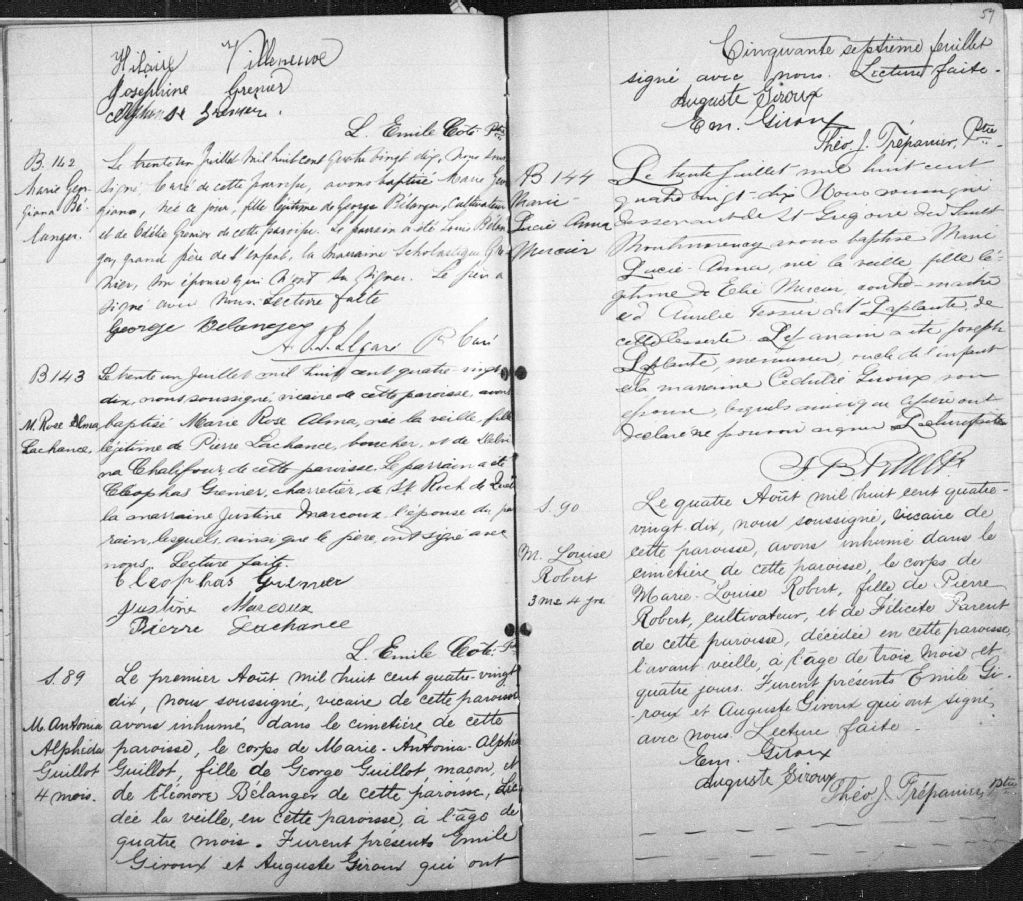 Hilaire Villeneuve
Joséphine Grenier
Alphonse Grenier.
L. Emile Coté Ptre
B. 142
Marie Geor
giana Bé-
langer.
Le trente un Juillet Mil huit cent Quatre Vingt dix, Nous sous
signé Curé de cette paroisse, avons baptisé Marie Geor
giana, née ce jour, fille légitime de George Bélanger, Cultivateur
et de Odélie Grenier de cette paroisse. Le parrain a été Louis Bélan
ger, grand père de l'enfant, la marraine Scholastique Gre
nier, son épouse qui n'ont su signer. Le père a
signé avec nous. Lecture faite
George Belanger
Ptre Curé
B 143
M. Rose Alma
Lachance.
Le trente un Juillet mil huit cent quatre vingt
dix, nous soussigné, vicaire de cette paroisse, avons
baptisé Marie Rose Alma, née la veille, fille
légitime de Pierre Lachance, boucher, et de
na Chalifour, de cette paroisse. Le parrain a été
Cléophas Grenier, charretier, de St Roch de Québec
la marraine Justine Marcoux l'épouse du par
rain, lesquels, ainsi que le père, ont signé avec
nous. Lecture faite.
Cléophas Grenier
Justine Marcoux
Pierre Lachance
L. Emile Coté. Ptre
S. 89
M. Antonia
Alphéda
Guillot
4 mois.
Le premier Août mil huit cent quatre-vingt
dix, nous soussigné, vicaire de cette paroisse
avons inhumé, dans le cimetière de cette
paroisse, le corps de Marie-Antonia-Alphéda
Guillot, fille de George Guillot, maçon, et
de Eléonore Belanger de cette paroisse, décé
dée la veille, en cette paroisse, à l'âge de
quatre mois. Furent présents Emile
Giroux et Auguste Giroux qui ont
57
Cinquante septième feuillet
signé avec nous. Lecture faite.
Auguste Giroux
Em. Giroux
Théo. J. Trépanier, Ptre
B 144
Marie-
Lucie Anna
Mercier
Le trente juillet mil huit cent
quatre vingt-dix Nous soussigné
desservant de St-Grégoire du Sault
Montmorency avons baptisé Marie
Lucie-Anna, née la veille fille lé-
gitime de Elie Mercier, contre-maître
et d'Aurélie Tessier dit Laplante de
cette desserte. Le parrain a été Joseph
Laplante, menuisier, oncle de l'enfant
et la marraine Cédulie Giroux, son
épouse, lesquels ainsi que le père ont
déclaré ne pouvoir signer Lecture faite
S. 90
M. Louise
Robert
3 ms 4 jrs
Le quatre Août mil huit cent quatre-
vingt dix, nous soussigné, vicaire de
cette paroisse, avons inhumé dans le
cimetière de cette paroisse, le corps de
Marie-Louise Robert, fille de Pierre
Robert, cultivateur, et de Félicité Parent
de cette paroisse, décédée en cette paroisse,
l'avant veille, à l'âge de trois mois et
quatre jours. Furent présents Emile Gi-
roux et Auguste Giroux qui ont signé
avec nous. Lecture faite.
Em. Giroux
Auguste Giroux
Théo J. Trépanier, Ptre